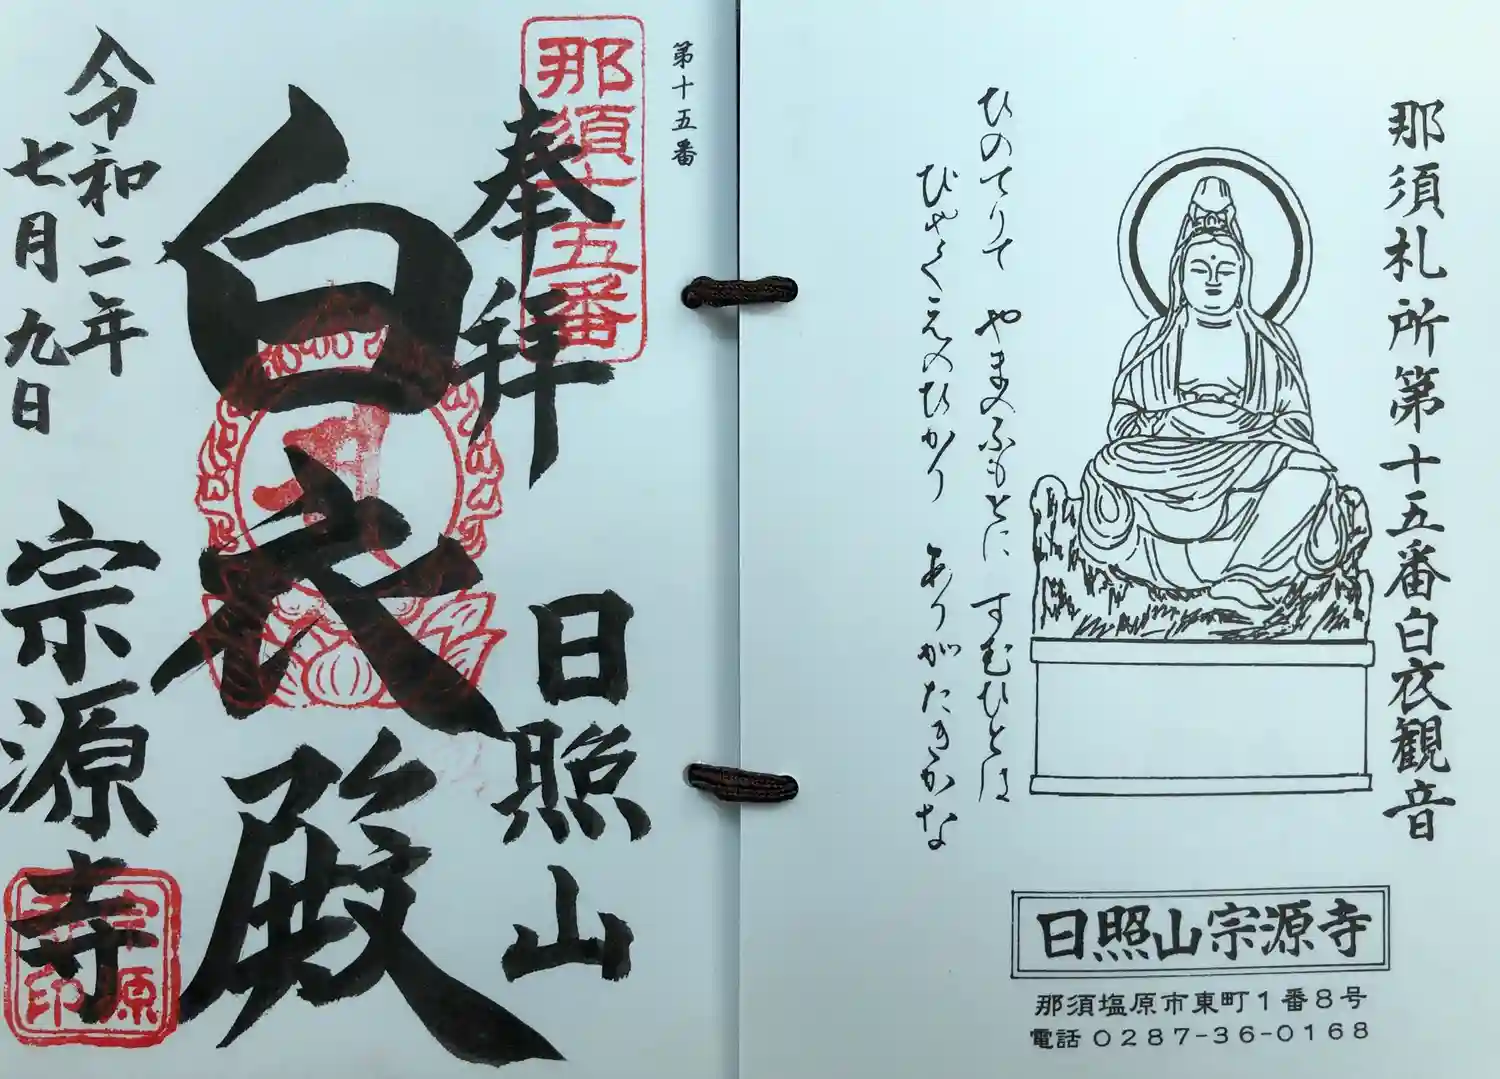 那須札所第十五番白衣観音
ひのてりて やまのふもとに すむひとは
びやくえのひかり ありがたきかな
日照山宗源寺
那須塩原市東町1番8号
電話 0287-36-0168
第十五番
那須十五番
奉拝
日照山
白衣殿
令和二年
七月九日
宗源寺
宗原
寺印